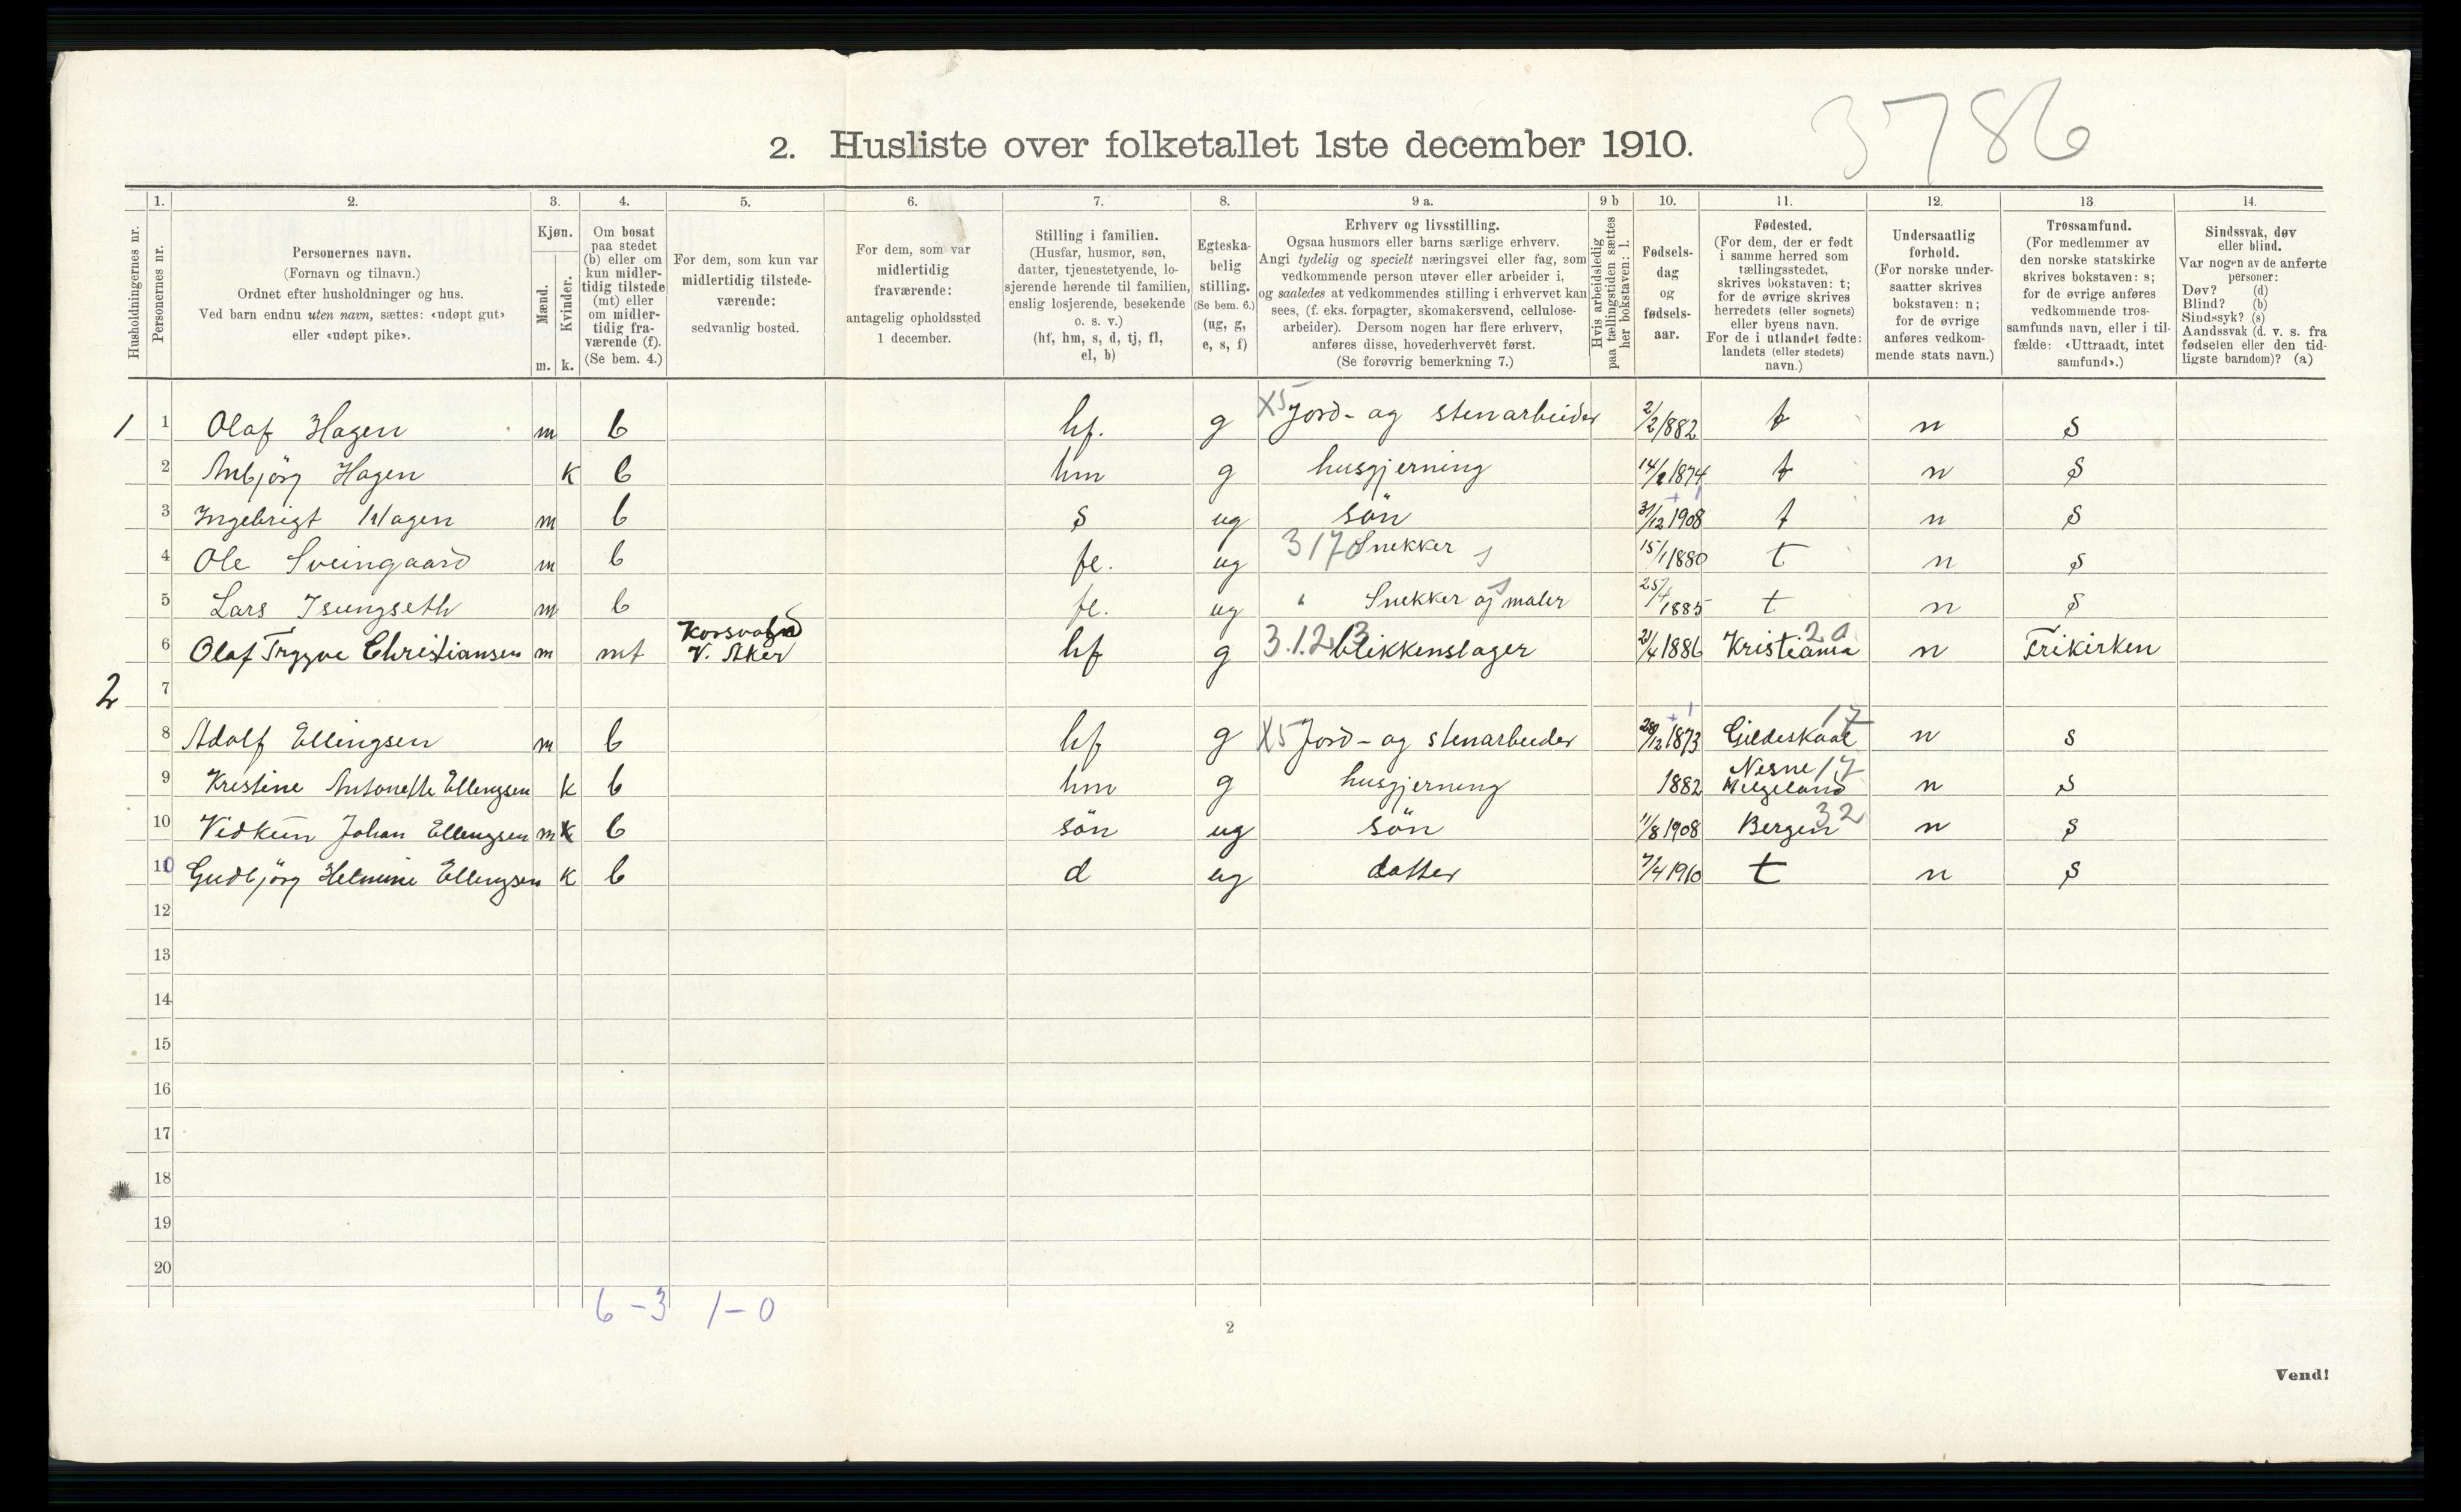 3786
2. Husliste over folketallet 1ste december 1910.
Husholdningernes nr.
1.
Personernes nr.
2.
Personernes navn.
(Fornavn og tilnavn.)
Ordnet efter husholdninger og hus.
Ved barn endnu uten navn, sættes: «udøpt gut»
eller «udøpt pike».
3.
Kjøn.
Mænd.
Kvinder.
m. k.
4.
Om bosat
paa stedet
(b) eller om
kun midler-
tidig tilstede
(mt) eller
om midler-
tidig fra-
værende (f).
(Se bem. 4.)
5.
For dem, som kun var
midlertidig tilstede-
værende:
sedvanlig bosted.
6.
For dem, som var
midlertidig
fraværende:
antagelig opholdssted
1 december.
7.
Stilling i familien.
(Husfar, husmor, søn,
datter, tjenestetyende, lo-
sjerende hørende til familien,
enslig losjerende, besøkende
o. s. v.)
(hf, hm, s, d, tj, fl,
el, b)
8.
Egteska-
belig
stilling.
(Se bem. 6.)
(ug, g,
e, s, f)
9 a.
Erhverv og livsstilling.
Ogsaa husmors eller barns særlige erhverv.
Angi tydelig og specielt næringsvei eller fag, som
vedkommende person utøver eller arbeider i,
og saaledes at vedkommendes stilling i erhvervet kan
sees, (f. eks. forpagter, skomakersvend, cellulose-
arbeider). Dersom nogen har flere erhverv,
anføres disse, hovederhvervet først.
(Se forøvrig bemerkning 7.)
9 b
Hvis arbeidsledig
paa tællingstiden sættes
her bokstaven: l.
10.
Fødsels-
dag
og
fødsels-
aar.
11.
Fødested.
(For dem, der er født
i samme herred som
tællingsstedet,
skrives bokstaven: t;
for de øvrige skrives
herredets (eller sognets)
eller byens navn.
For de i utlandet fødte:
landets (eller stedets)
navn.)
12.
Undersaatlig
forhold.
(For norske under-
saatter skrives
bokstaven: n;
for de øvrige
anføres vedkom-
mende stats navn.)
13.
Trossamfund.
(For medlemmer av
den norske statskirke
skrives bokstaven: s;
for de øvrige anføres
vedkommende tros-
samfunds navn, eller i til-
fælde: «Uttraadt, intet
samfund».)
14.
Sindssvak, døv
eller blind.
Var nogen av de anførte
personer:
Døv? (d)
Blind? (b)
Sindssyk? (s)
Aandssvak (d. v. s. fra
fødselen eller den tid-
ligste barndom)? (a)
1 1 Olaf Hagen m b hf. g X5 Jord- og stenarbeider 2/2 1882 t n s
2 Anbjörg Hagen k b hm g husgjerning 14/2 1874 t n s
3 Ingebrigt Hagen m b s ug sön 31/12 1908 t n s
4 Ole Sveingaard m b fl. ug 317 Snekker s 15/1 1880 t n s
5 Lars m b fl. ug " Snekker og maler 25/4 1885 t n s
6 Olaf Trygve Christiansen m mt Korsvold V. Aker hf g 3.1.23 blikkenslager 21/4 1886 Kristiania 20 n Frikirken
2 7
8 Adolf Ellingsen m b hf g X5 Jord- og stenarbeider 28/12 1873 Gildeskaal 17 n s
9 Kristine Antonette Ellingsen k b hm g husgjerning 1882 Nesne 17 Helgeland n s
10 Vidkun Johan Ellingsen m k b sön ug sön 11/8 1908 Bergen 32 n s
11 0 Gudbjörg Helmine Ellingsen k b d ug datter 7/4 1910 t n s
12
13
14
15
16
17
18
19
20
6 - 3 1 - 0
2
Vend!